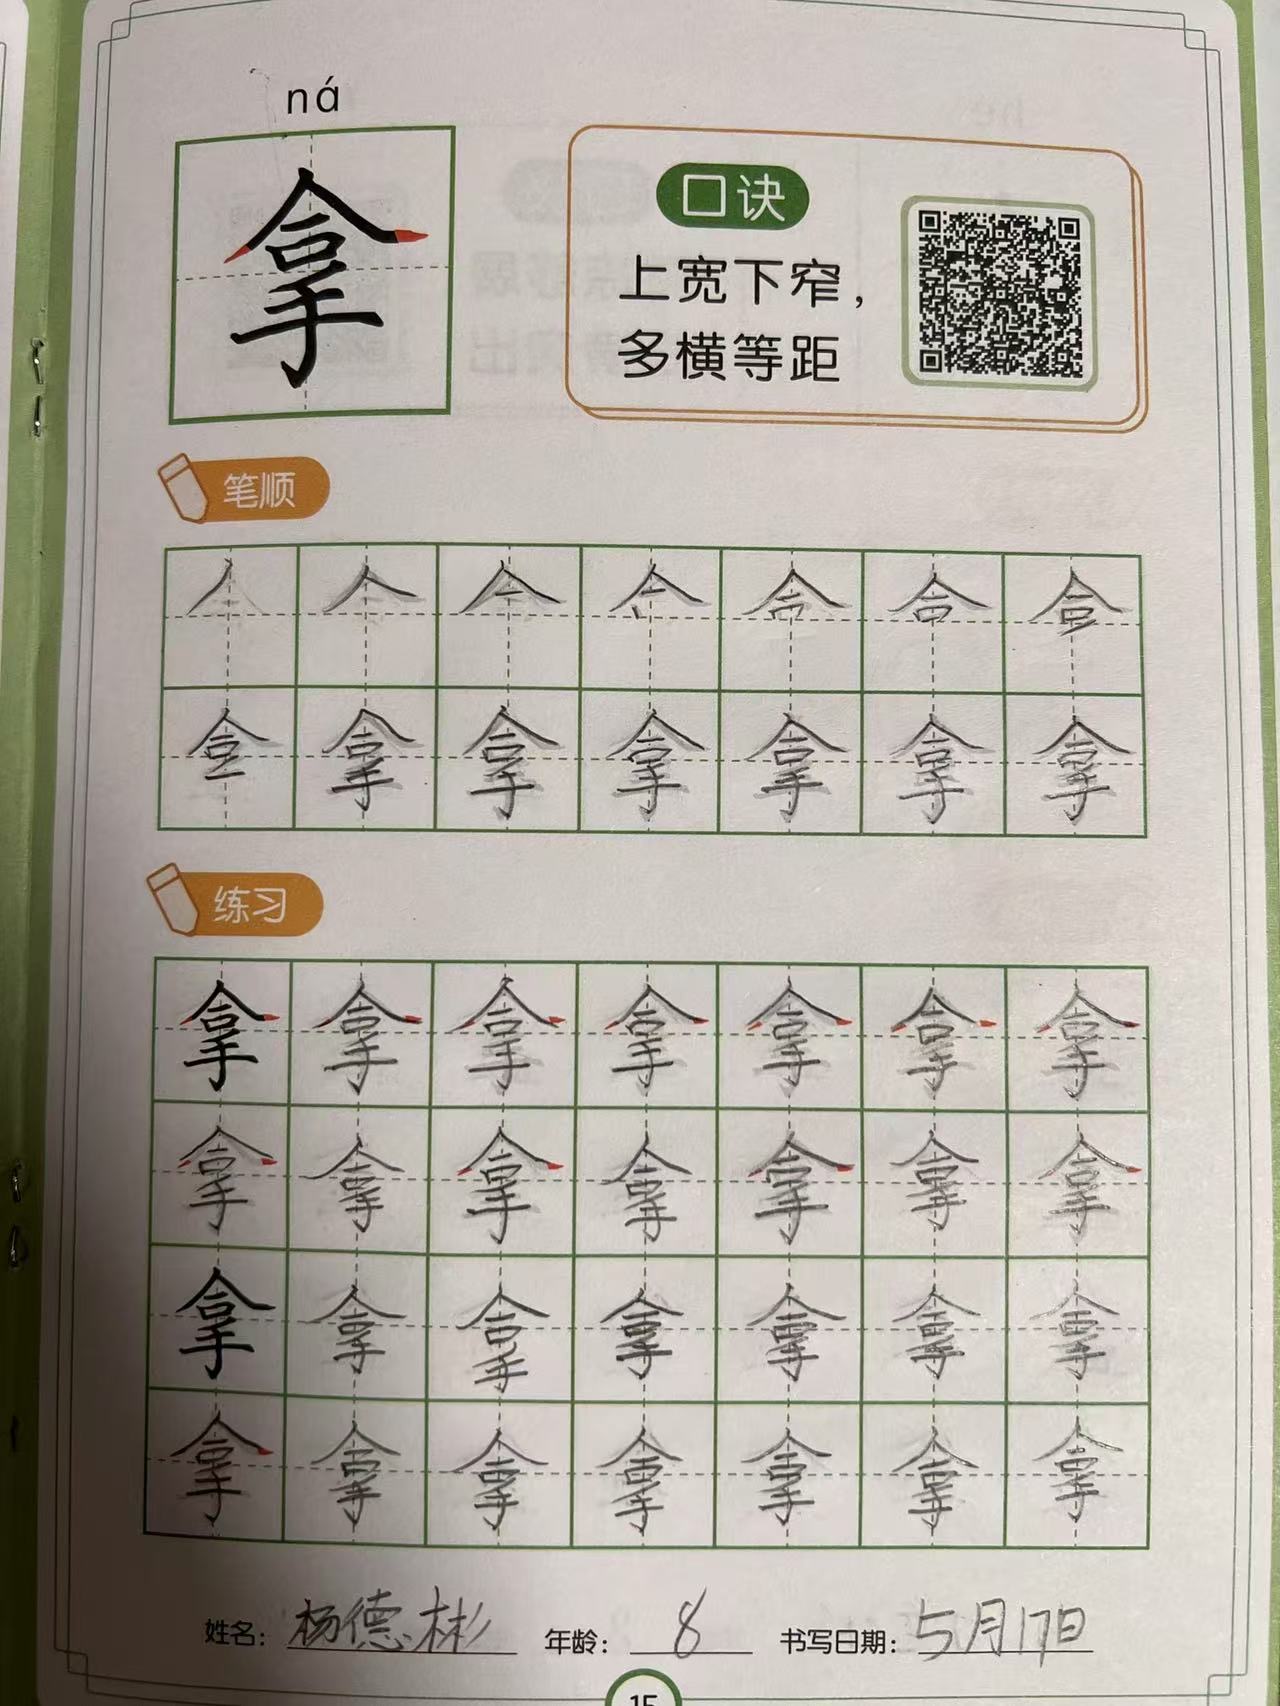 ná
拿
口诀
上宽下窄，
多横等距
笔顺
拿 拿 拿 拿 拿 拿
练习
拿 拿 拿 拿 拿 拿 拿
拿 拿 拿 拿 拿 拿 拿
拿 拿 拿 拿 拿 拿 拿
拿 拿 拿 拿 拿 拿 拿
姓名：杨德彬 年龄：8 书写日期：5月17日
15